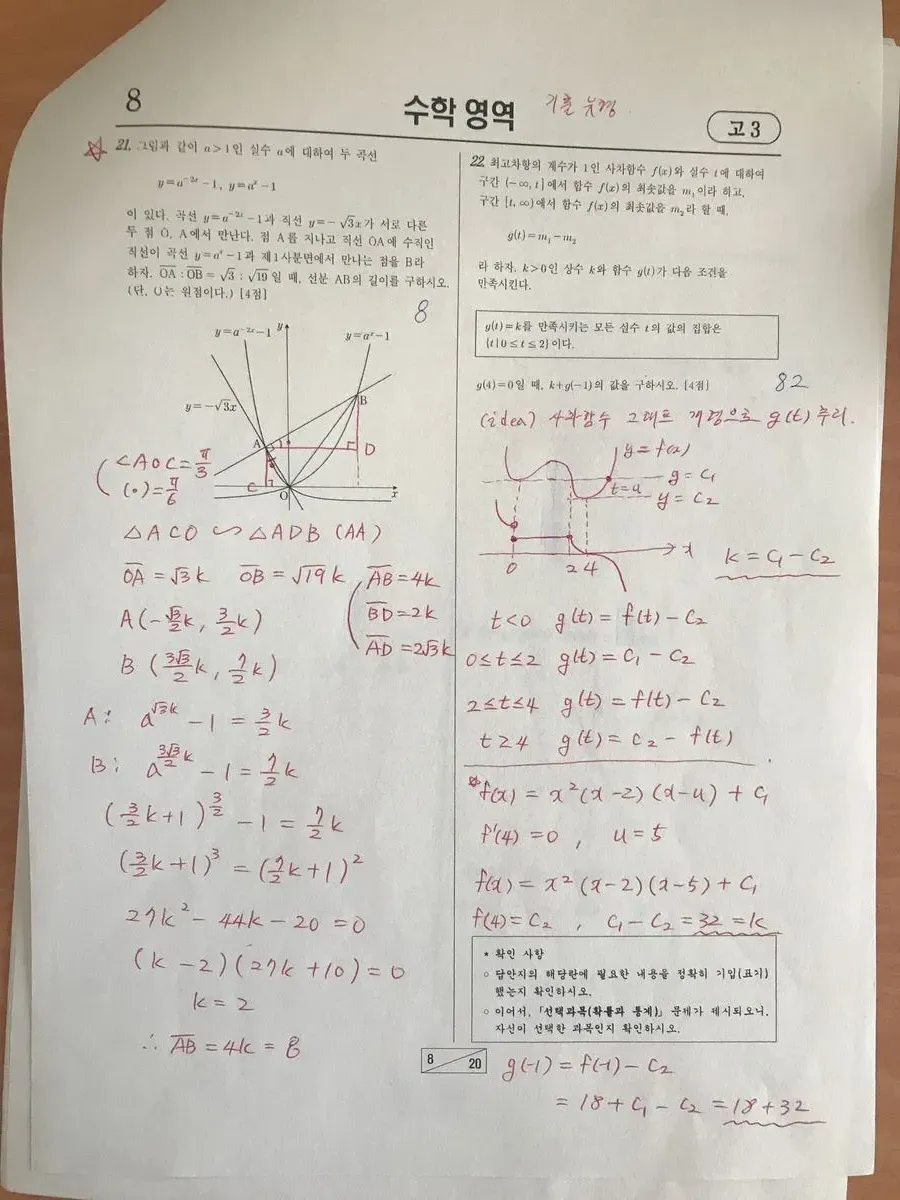 8
수학 영역
기출 유형.
고 3
21. 그림과 같이 a>1인 실수 a에 대하여 두 곡선
y=a^{-2x}-1, y=a^x-1
이 있다. 곡선 y=a^{-2x}-1과 직선 y=-√3x가 서로 다른
두 점 O, A에서 만난다. 점 A를 지나고 직선 OA에 수직인
직선이 곡선 y=a^x-1과 제1사분면에서 만나는 점을 B라
하자. OA : OB = √3 : √19 일 때, 선분 AB의 길이를 구하시오.
(단, O는 원점이다.) [4점]
8
y=a^{-2x}-1
y
y=a^x-1
y=-√3x
B
A
D
C
O
x
∠AOC = π/3
(•) = π/6
△ACO ∽ △ADB (AA)
OA = √3k OB = √19 k, AB = 4k
BD = 2k
AD = 2√3k
A(-√3/2 k, 3/2 k)
B (3√3/2 k, 7/2 k)
A: a^{√3k} - 1 = 3/2 k
B: a^{3√3/2 k} - 1 = 7/2 k
(3/2 k + 1)^{3/2} - 1 = 7/2 k
(3/2 k + 1)^3 = (7/2 k + 1)^2
27k^2 - 44k - 20 = 0
(k - 2)(27k + 10) = 0
k = 2
∴ AB = 4k = 8
22. 최고차항의 계수가 1인 사차함수 f(x)와 실수 t에 대하여
구간 (-∞, t]에서 함수 f(x)의 최솟값을 m₁이라 하고,
구간 [t, ∞)에서 함수 f(x)의 최솟값을 m₂라 할 때,
g(t)=m₁-m₂
라 하자. k>0인 상수 k와 함수 g(t)가 다음 조건을
만족시킨다.
g(t)=k를 만족시키는 모든 실수 t의 값의 집합은
{t|0≤t≤2}이다.
g(4)=0일 때, k+g(-1)의 값을 구하시오. [4점]
82
(idea) 사차함수 그래프 개형으로 g(t) 추리.
y=f(x)
y=C₁
t=u
y=C₂
x
0 2 4
k = C₁ - C₂
t<0 g(t) = f(t) - C₂
0≤t≤2 g(t) = C₁ - C₂
2≤t≤4 g(t) = f(t) - C₂
t≥4 g(t) = C₂ - f(t)
f(x) = x²(x-2)(x-u) + C₁
f'(4) = 0 , u = 5
f(x) = x²(x-2)(x-5) + C₁
f(4) = C₂ , C₁ - C₂ = 32 = k
* 확인 사항
○ 답안지의 해당란에 필요한 내용을 정확히 기입(표기)
했는지 확인하시오.
○ 이어서, 「선택과목(확률과 통계)」 문제가 제시되오니,
자신이 선택한 과목인지 확인하시오.
8 20
g(-1) = f(-1) - C₂
= 18 + C₁ - C₂ = 18 + 32